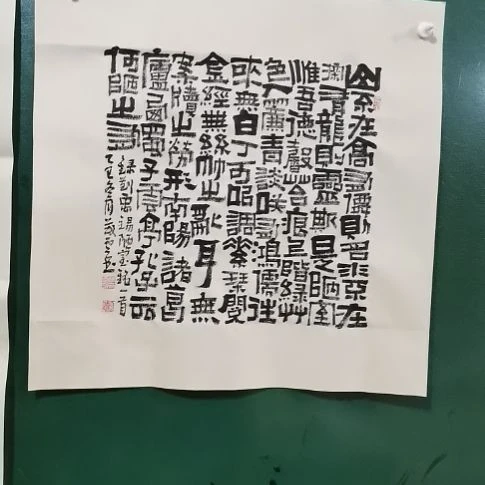 山不在高有僊則名水不在
深有龍則靈斯是陋室
惟吾德馨苔痕上階綠草
色入簾青談咲有鴻儒往
來無白丁可㠯調素琴閱
金經無絲竹之亂耳無
案牘之勞形南陽諸葛
廬西蜀子雲亭孔子云
何陋之有
錄劉禹錫陋室銘一首
乙巳冬月